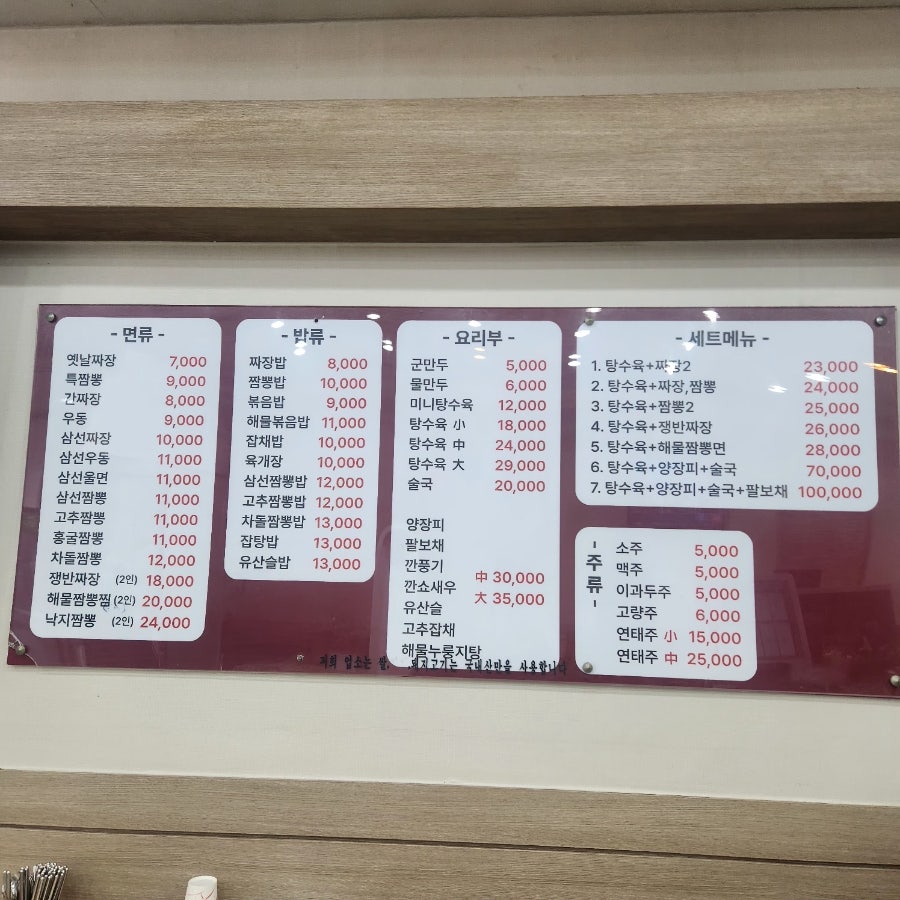 - 면류 -
옛날짜장 7,000
특짬뽕 9,000
간짜장 8,000
우동 9,000
삼선짜장 10,000
삼선우동 11,000
삼선울면 11,000
삼선짬뽕 11,000
고추짬뽕 11,000
홍굴짬뽕 11,000
차돌짬뽕 12,000
쟁반짜장 (2인) 18,000
해물짬뽕찜 (2인) 20,000
낙지짬뽕 (2인) 24,000
- 밥류 -
짜장밥 8,000
짬뽕밥 10,000
볶음밥 9,000
해물볶음밥 11,000
잡채밥 10,000
육개장 10,000
삼선짬뽕밥 12,000
고추짬뽕밥 12,000
차돌짬뽕밥 13,000
잡탕밥 13,000
유산슬밥 13,000
- 요리부 -
군만두 5,000
물만두 6,000
미니탕수육 12,000
탕수육 小 18,000
탕수육 中 24,000
탕수육 大 29,000
술국 20,000
양장피
팔보채
깐풍기
깐쇼새우
유산슬
고추잡채
해물누룽지탕
中 30,000
大 35,000
- 세트메뉴 -
1. 탕수육+짜장2 23,000
2. 탕수육+짜장,짬뽕 24,000
3. 탕수육+짬뽕2 25,000
4. 탕수육+쟁반짜장 26,000
5. 탕수육+해물짬뽕면 28,000
6. 탕수육+양장피+술국 70,000
7. 탕수육+양장피+술국+팔보채 100,000
- 주류 -
소주 5,000
맥주 5,000
이과두주 5,000
고량주 6,000
연태주 小 15,000
연태주 中 25,000
저희 업소는 쌀, 돼지고기는 국내산만을 사용합니다